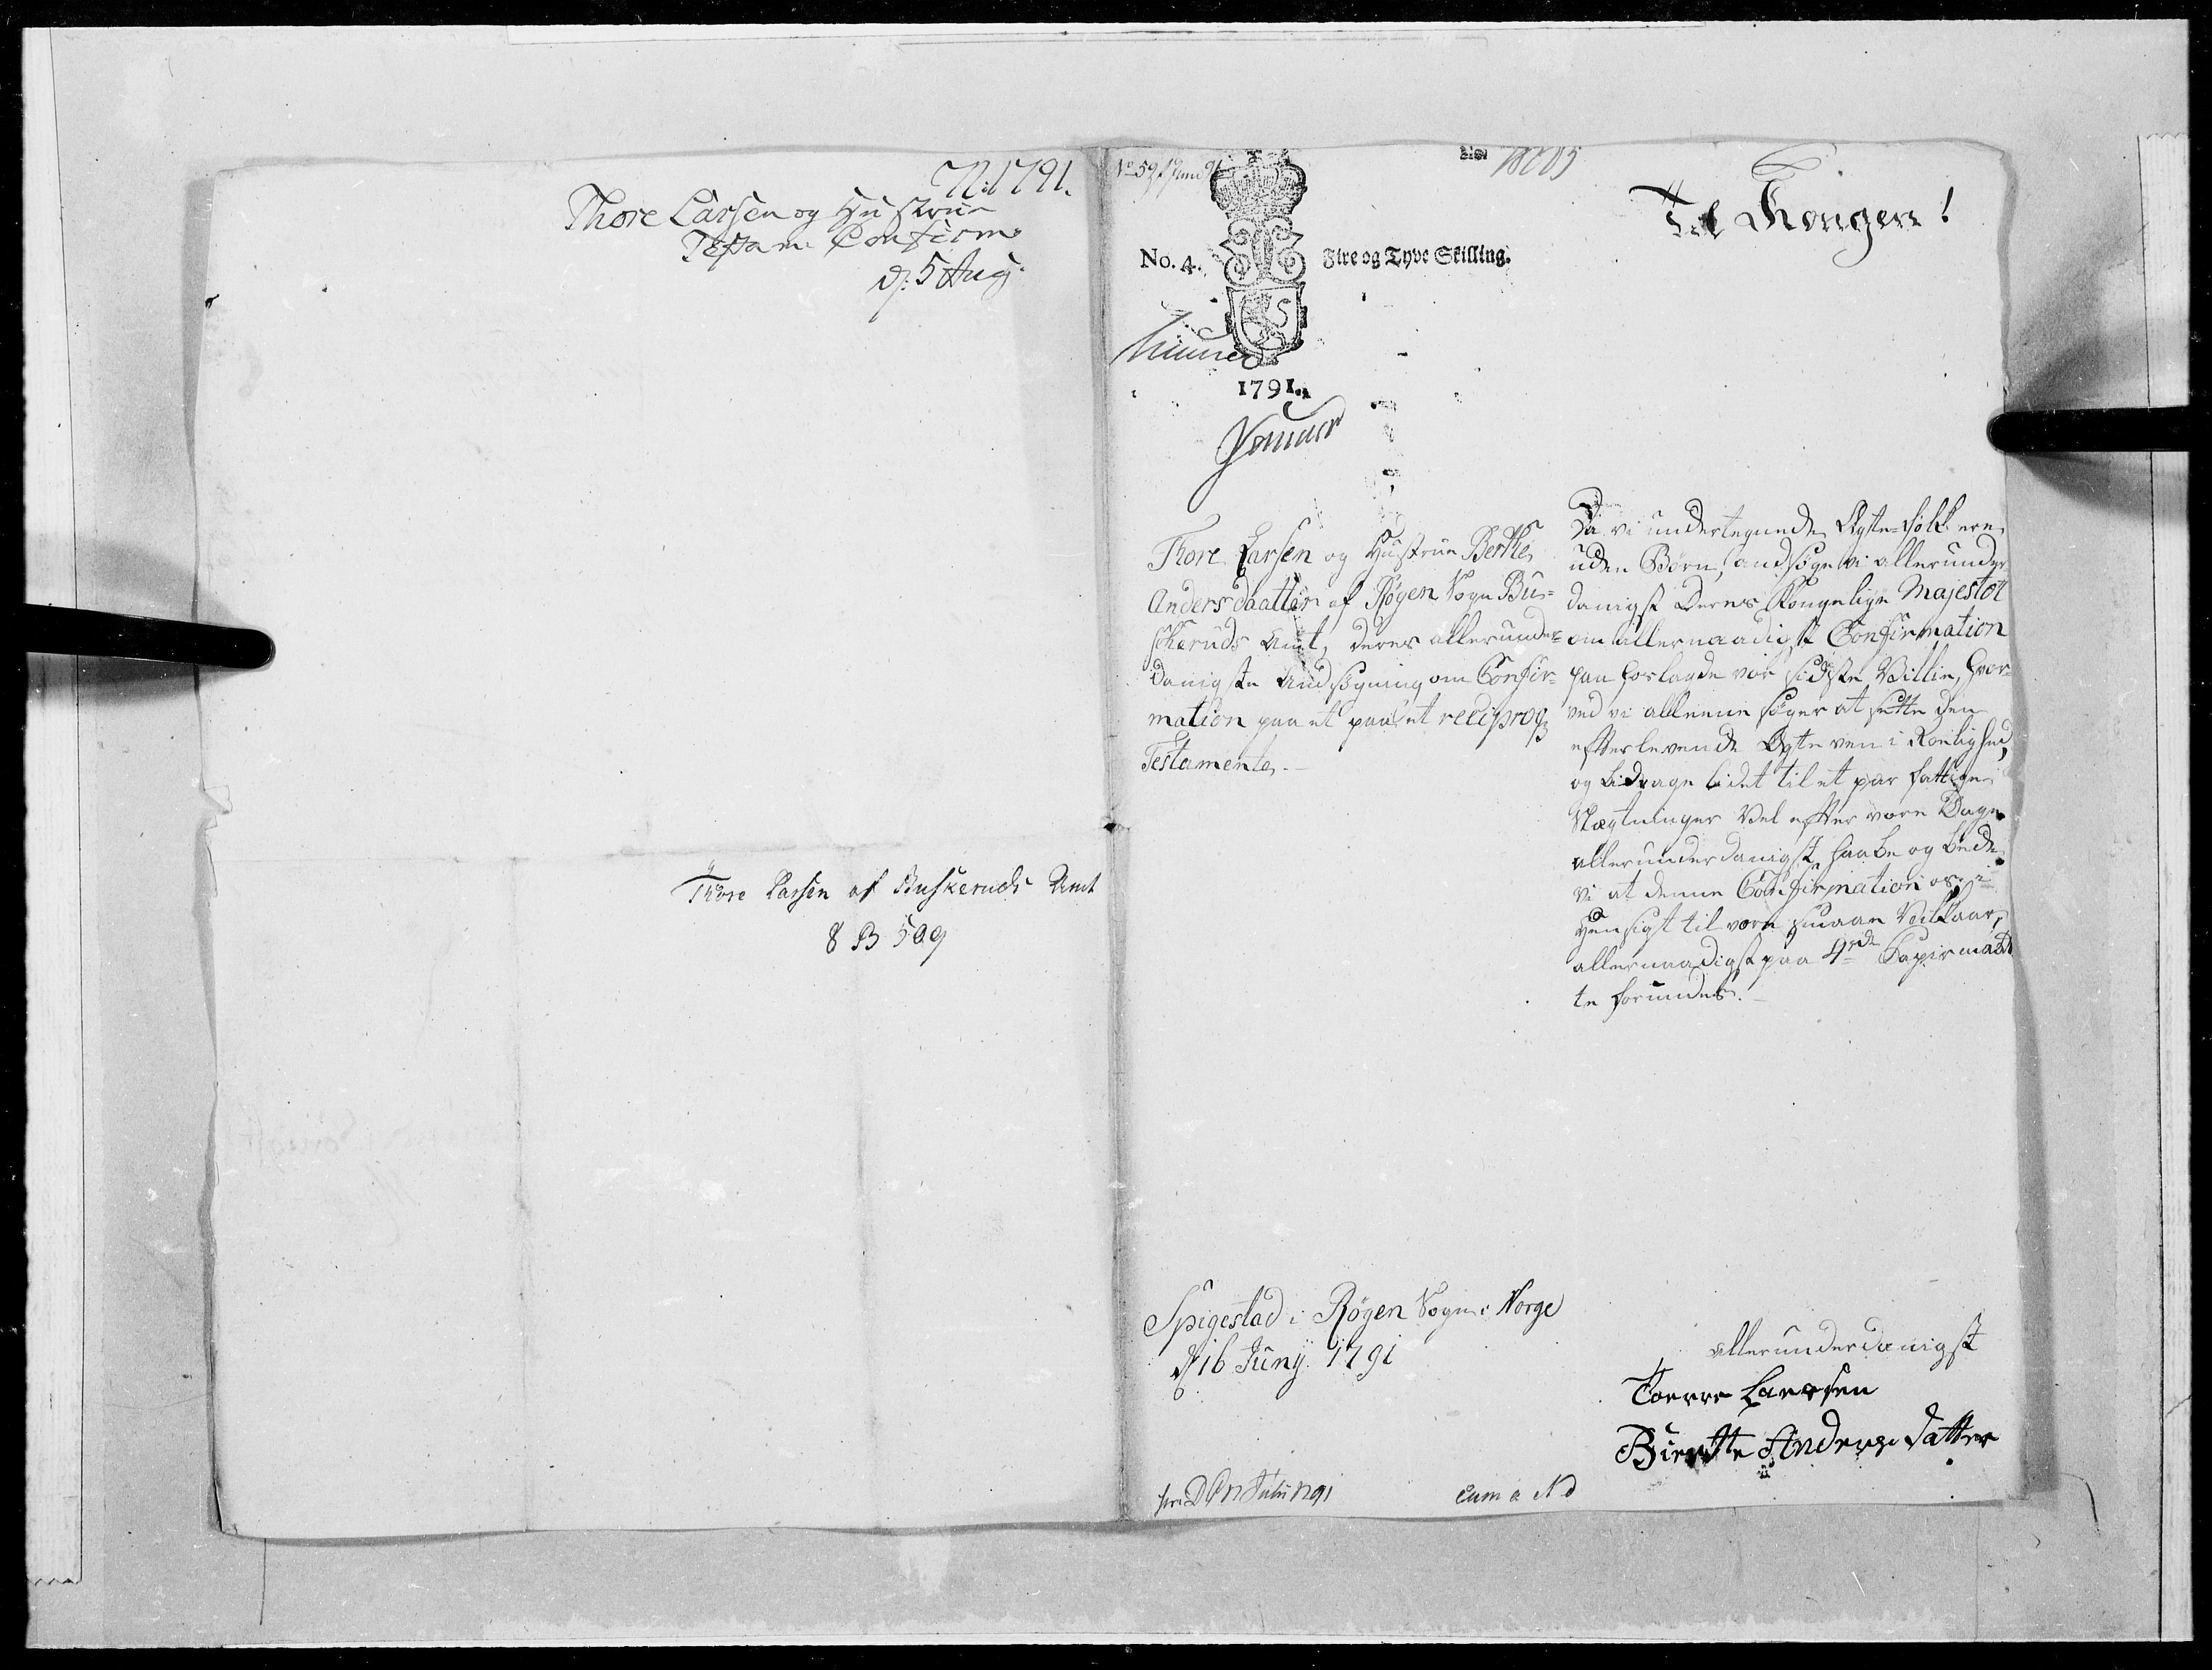 N: 1791.
Thore Larsen og Hustrue
Testam: Confirm:
d: 5 Aug:
Thore Larsen af Buskeruds Amt
8 B 509
No 59
No. 4. Fire og Tyve Skilling.
1791.
Til Kongen!
Thore Larsen og Hustrue Berthe
Andersdaatter af Røgen Sogn Bu-
skeruds Amt, deres allerunder-
danigste Andsøgning om Confir-
mation paa et paa et reciproq
Testamente.
Da vi undertegnede Ægte-folk ere
uden Børn, andsøge vi allerunder
danigst Deres Kongelige Majestet
om allernaadigst Confirmation
paa hoslagde vor sidste Villie, hvor-
ved vi alleene søger at sette den
efterlevende Ægte ven i Roelighed,
og bidrage lidet til et par fattige
Slægtninger Vel efter vore Dage.
allerunderdanigst haabe og bede
vi at denne Confirmation os i
Hensigt til vore smaae Vilkaar,
allernaadigst paa 4de Papir maat
te forundes.
Spigestad i Røgen Sogn i Norge
d 16 Junij 1791
allerunderdanigst
Toerre Laersen
Bierthe Anders datter